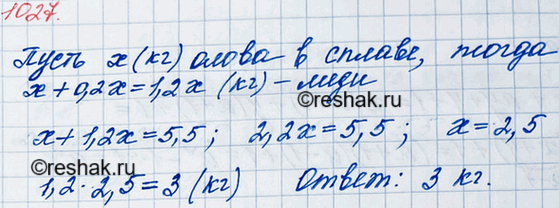 1027.
Пусть x (кг) олова в сплаве, тогда
x + 0,2x = 1,2x (кг) – меди
©reshak.ru
x + 1,2x = 5,5; 2,2x = 5,5; x = 2,5
©reshak.ru
1,2 · 2,5 = 3 (кг) Ответ: 3 кг.